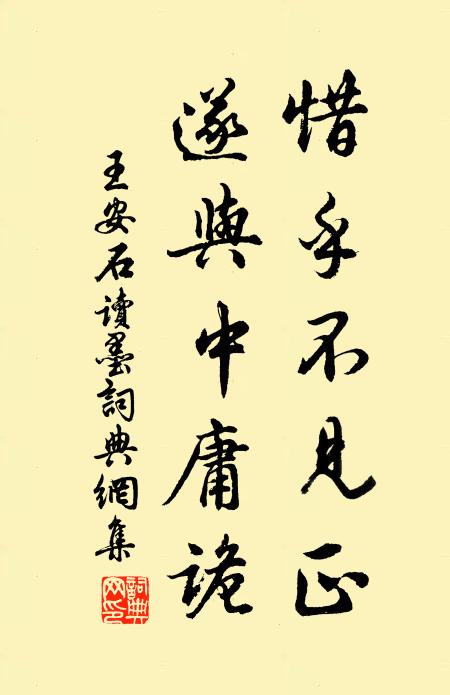 惜乎不見正
遂與中庸詭
王安石讀墨詞典網集
詞典